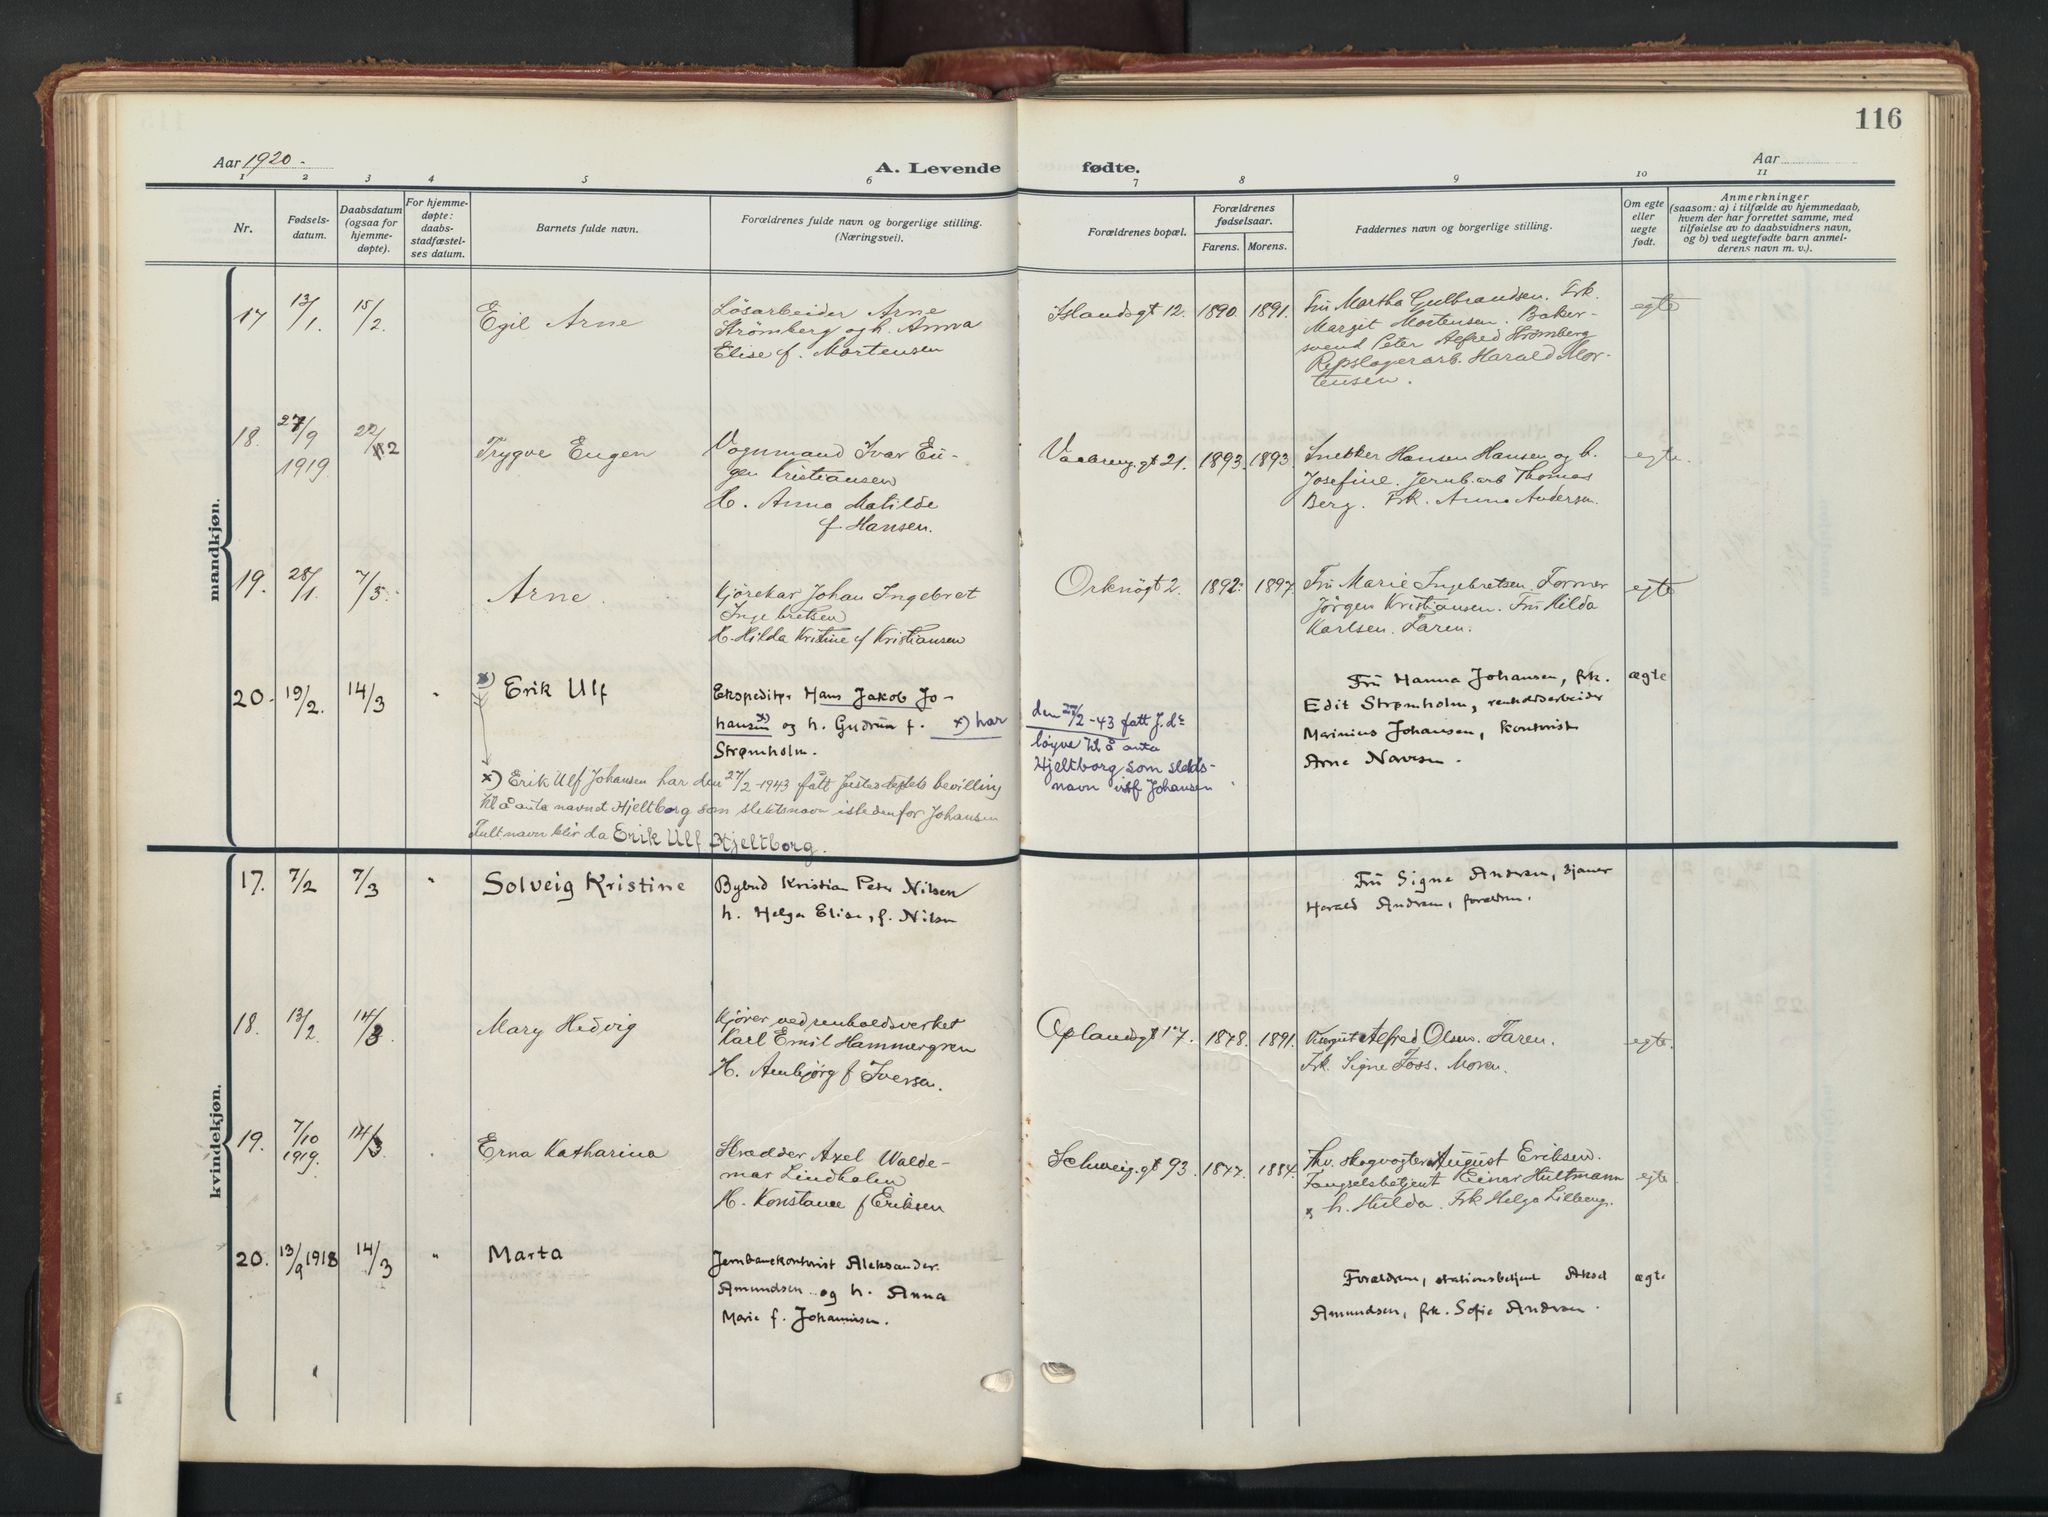 116
Aar 1920.
A. Levende fødte.
Aar
1 2 3 4 5 6 7 8 9 10 11
Nr.
Fødsels-
datum.
Daabsdatum
(ogsaa for
hjemme-
døpte).
For hjemme-
døpte:
daabs-
stadfæstel-
ses datum.
Barnets fulde navn.
Forældrenes fulde navn og borgerlige stilling.
(Næringsvei).
Forældrenes bopæl.
Forældrenes
fødselsaar.
Farens. Morens.
Faddernes navn og borgerlige stilling.
Om egte
eller
uegte
født.
Anmerkninger
(saasom: a) i tilfælde av hjemmedaab,
hvem der har forrettet samme, med
tilføielse av to daabsvidners navn,
og b) ved uegtefødte barn anmel-
derens navn m. v.).
mandkjøn.
17 13/1. 15/2. Egil Arne
Løsarbeider Arne
Strømberg og h. Anna
Elise f. Mortensen
Islandsgt 12. 1890. 1891.
Fru Martha Gulbrandsen. Frk.
Margit Mortensen. Baker-
svend Peter Alfred Strømberg
Repslagerarb. Harald Mor-
tensen.
egte
18. 27/9 1919. 22/2 Trygve Eugen
Vognmand Ivar Eu-
gen Kristiansen
H. Anna Matilde
f. Hansen.
Vaalreng.gt 21. 1893. 1893.
Snekker Hansen Hansen og h.
Josefine. Jernb.arb Thomas
Berg. Frk. Anna Andersen.
egte.
19. 28/1. 7/3. Arne.
Kjørekar Johan Ingebret
Ingebretsen
H. Hilda Kristine f Kristiansen
Orknøgt 2. 1892. 1897.
Fru Marie Ingebretsen. Former
Jörgen Kristiansen. Fru Hilda
Karlsen. Faren.
egte
20. 19/2. 14/3 " x) Erik Ulf
Ekspeditør Hans Jakob Jo-
hansen x) og h. Gudrun f. x) har
Strømholm.
den 27/2-43 fått J.d=
løyve til å anta
Hjeltborg som slekts-
navn istf Johansen
Fru Hanna Johansen, frk.
Edit Strømholm, renholdsarbeider
Marinius Johansen, kontorist
Arne Navesen.
ægte
x) Erik Ulf Johansen har den 27/2-1943 fått Justisdeptets bevilling
til å anta navnet Hjeltborg som slektsnavn istedenfor Johansen
Fullt navn blir da Erik Ulf Hjeltborg.
kvindekjøn.
17. 7/2 7/3 " Solveig Kristine
Bybud Kristian Peter Nilsen
h. Helga Elise, f. Nilsen
Fru Signe Andresen,
Harald Andresen, forældrene.
18. 13/2. 14/3. Mary Hedvig
Kjører ved renholdsverket
Karl Emil Hammergren
H. Arnbjørg f Iversen.
Oplandsgt 17. 1878. 1891.
Alfred Olsen. Faren.
Frk. Signe Foss. Moren.
egte.
19. 7/10 1919. 14/3. Erna Katharina
Skrædder Axel Walde-
mar Lindholm
H. Konstance f Eriksen
Schweig.gt 93. 1877. 1884.
Fhv. skogvogter August Eriksen.
Fængselsbetjent Einar Hultmann
og h. Hulda. Frk Helga Lilberg.
egte
20. 13/9 1918 14/3 " Marta
Jernbanekontorist Aleksander
Amundsen og h. Anna
Marie f. Johannesen.
Forældrene, stationsbetjent Aksel
Amundsen, frk. Sofie Andresen.
ægte